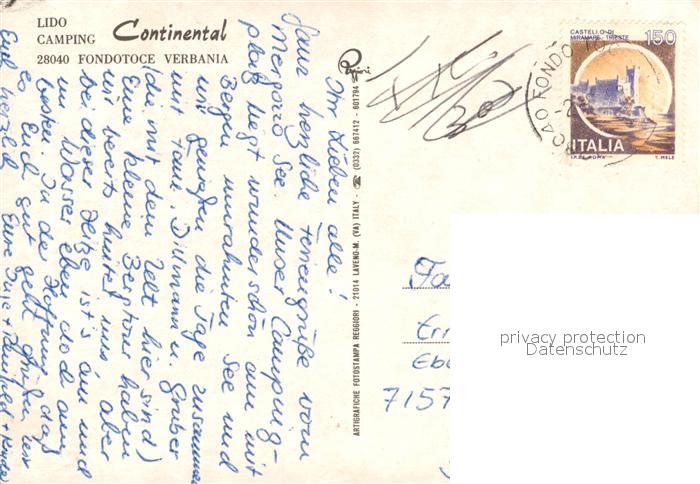 LIDO
CAMPING Continental
28040 FONDOTOCE VERBANIA
Ihr Lieben alle!
Ganz herzliche Feriengrüße vom
Mergozzo See. Unser Camping-
platz liegt wunderschön am mit
Bergen umrahmten See und
wir genießen die Tage zusammen
mit Fam. Dillmann u. Gruber
(die mit dem Zelt hier sind)
Eine kleine Bergtour haben
wir bereits hinter uns aber
bei dieser Hitze ist's am und
im Wasser eben doch am
besten. In der Hoffnung daß
es Euch gut geht grüßen wir
Euch herzlich Eure
ARTIGRAFICHE FOTOSTAMPA REGGIORI - 21014 LAVENO-M. (VA) ITALY - ☎ (0332) 667412 - 601794
CASTELLO DI
MIRAMARE - TRIESTE
150
ITALIA
I.P.Z.S. ROMA T. MELE
FONDOTOCE
Fa
Eri
Ebe
7157
privacy protection
Datenschutz